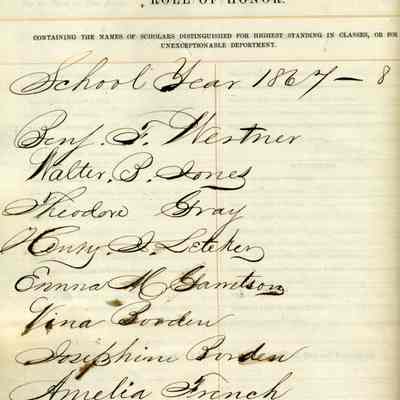 ROLL OF HONOR.
CONTAINING THE NAMES OF SCHOLARS DISTINGUISHED FOR HIGHEST STANDING IN CLASSES, OR FOR
UNEXCEPTIONABLE DEPORTMENT.
School Year 1867-8
Benj. F. Westner
Walter. B. Jones
Theodore Gray
Henry. I. Letcher
Emma M Garretson
Vina Booden
Josephine Borden
Amelia French